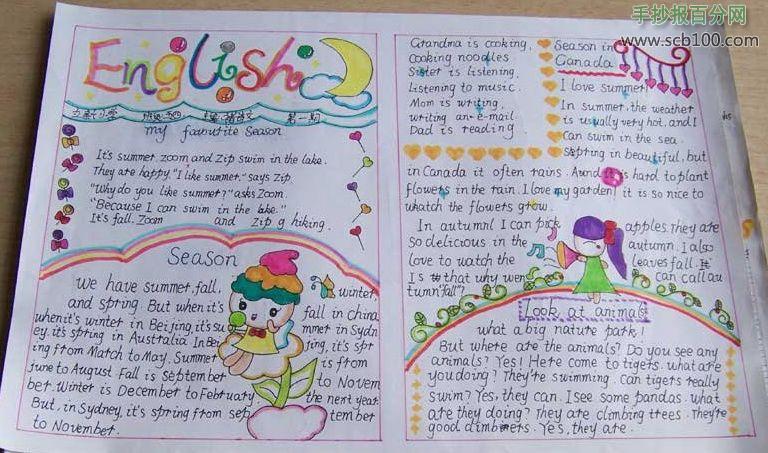 手抄报百分网
www.scb100.com
English
my favourite season
It's summer. zoom and Zip swim in the lake.
They are happy."I like summer." says Zip.
"Why do you like summer?" asks Zoom.
"Because I can swim in the lake."
It's fall. Zoom and Zip g hiking.
Season
We have summer, fall, winter,
and spring. But when it's fall in china
when it's winter in Beijing, it's summer in Sydn
ey. it's spring in Australia. In Beijing, it's spr
ing from Match to May. Summer is from
june to August. Fall is September to Novem
ber. Winter is December to February the next year.
But, in Sydney, it's spring from september
to November.
Grandma is cooking,
Cooking noodles
Sister is listening.
Listening to music.
Mom is writing.
writing an e-mail.
Dad is reading
Season in
Canada
I love summer!
In summer, the weather
is usually very hot, and I
can swim in the sea.
Spring in beautiful, but
in Canada it often rains. And it is hard to plant
flowers in the rain. I love my garden! it is so nice to
whatch the flowers grow.
In autumn! I can pick apples. they are
so delicious in the autumn. I also
love to watch the leaves fall. It
Is that why wer can call au
tumn "fall"?
Look at animals
what a big nature park!
But where are the animals? Do you see any
animals? Yes! Here come to tigers. what are
you doing? They're swimming. Can tigers really
swim? Yes, they can. I see some pandas. what
are they doing? They are climbing trees. They're
good climbers. Yes, they are.